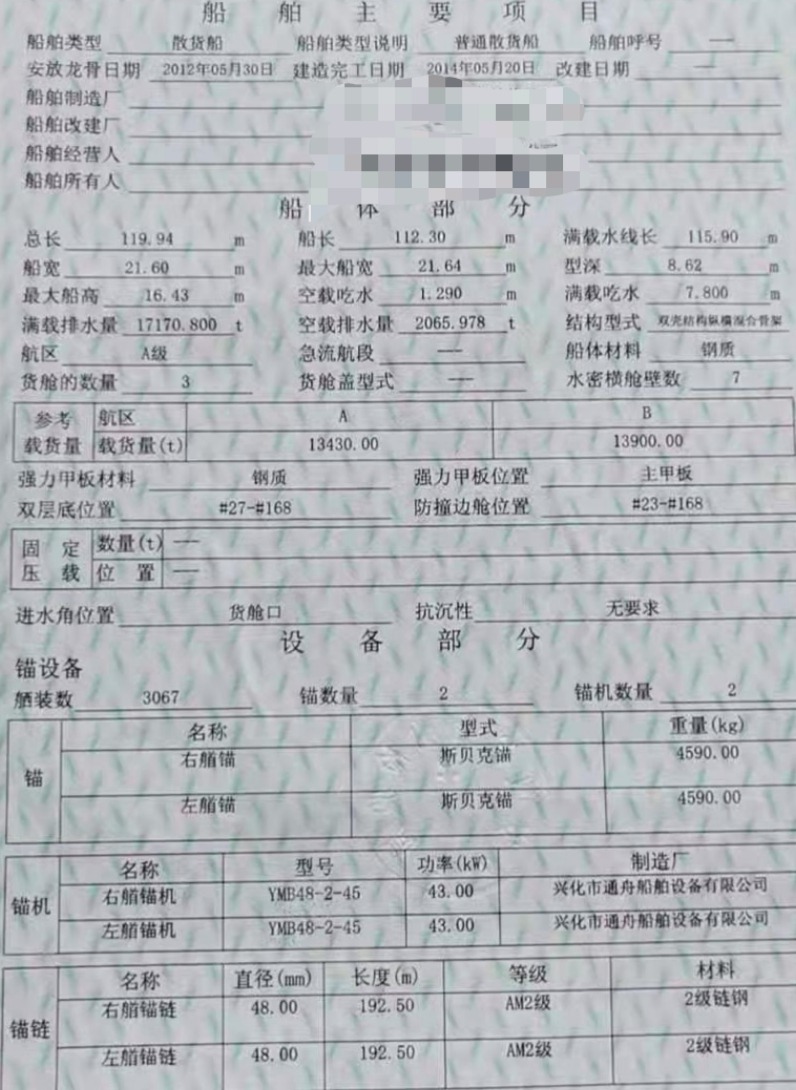 船舶主要项目
船舶类型 散货船 船舶类型说明 普通散货船 船舶呼号 ——
安放龙骨日期 2012年05月30日 建造完工日期 2014年05月20日 改建日期 ——
船舶制造厂
船舶改建厂
船舶经营人
船舶所有人
船体部分
总长 119.94 m 船长 112.30 m 满载水线长 115.90 m
船宽 21.60 m 最大船宽 21.64 m 型深 8.62 m
最大船高 16.43 m 空载吃水 1.290 m 满载吃水 7.800 m
满载排水量 17170.800 t 空载排水量 2065.978 t 结构型式 双壳结构纵横混合骨架
航区 A级 急流航段 —— 船体材料 钢质
货舱的数量 3 货舱盖型式 —— 水密横舱壁数 7
参考 航区 A B
载货量 载货量(t) 13430.00 13900.00
强力甲板材料 钢质 强力甲板位置 主甲板
双层底位置 #27-#168 防撞边舱位置 #23-#168
固定 数量(t) ——
压载 位置 ——
进水角位置 货舱口 抗沉性 无要求
设备部分
锚设备
舾装数 3067 锚数量 2 锚机数量 2
名称 型式 重量(kg)
锚 右艏锚 斯贝克锚 4590.00
左艏锚 斯贝克锚 4590.00
名称 型号 功率(kW) 制造厂
锚机 右艏锚机 YMB48-2-45 43.00 兴化市通舟船舶设备有限公司
左艏锚机 YMB48-2-45 43.00 兴化市通舟船舶设备有限公司
名称 直径(mm) 长度(m) 等级 材料
锚链 右艏锚链 48.00 192.50 AM2级 2级链钢
左艏锚链 48.00 192.50 AM2级 2级链钢